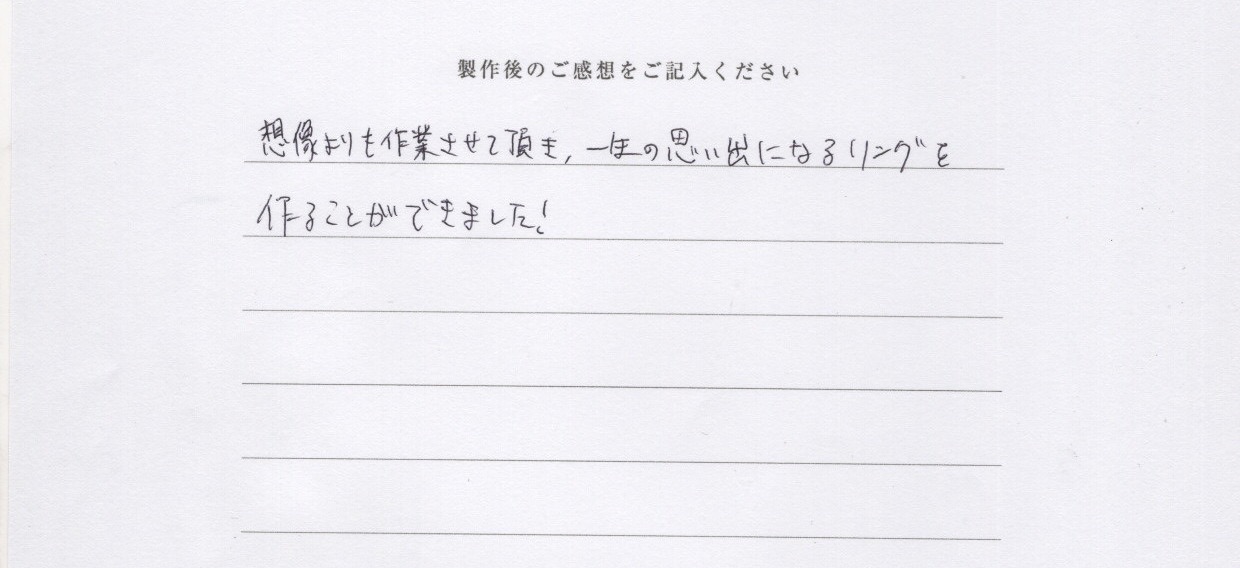 製作後のご感想をご記入ください
想像よりも作業させて頂き、一生の思い出になるリングを
作ることができました!